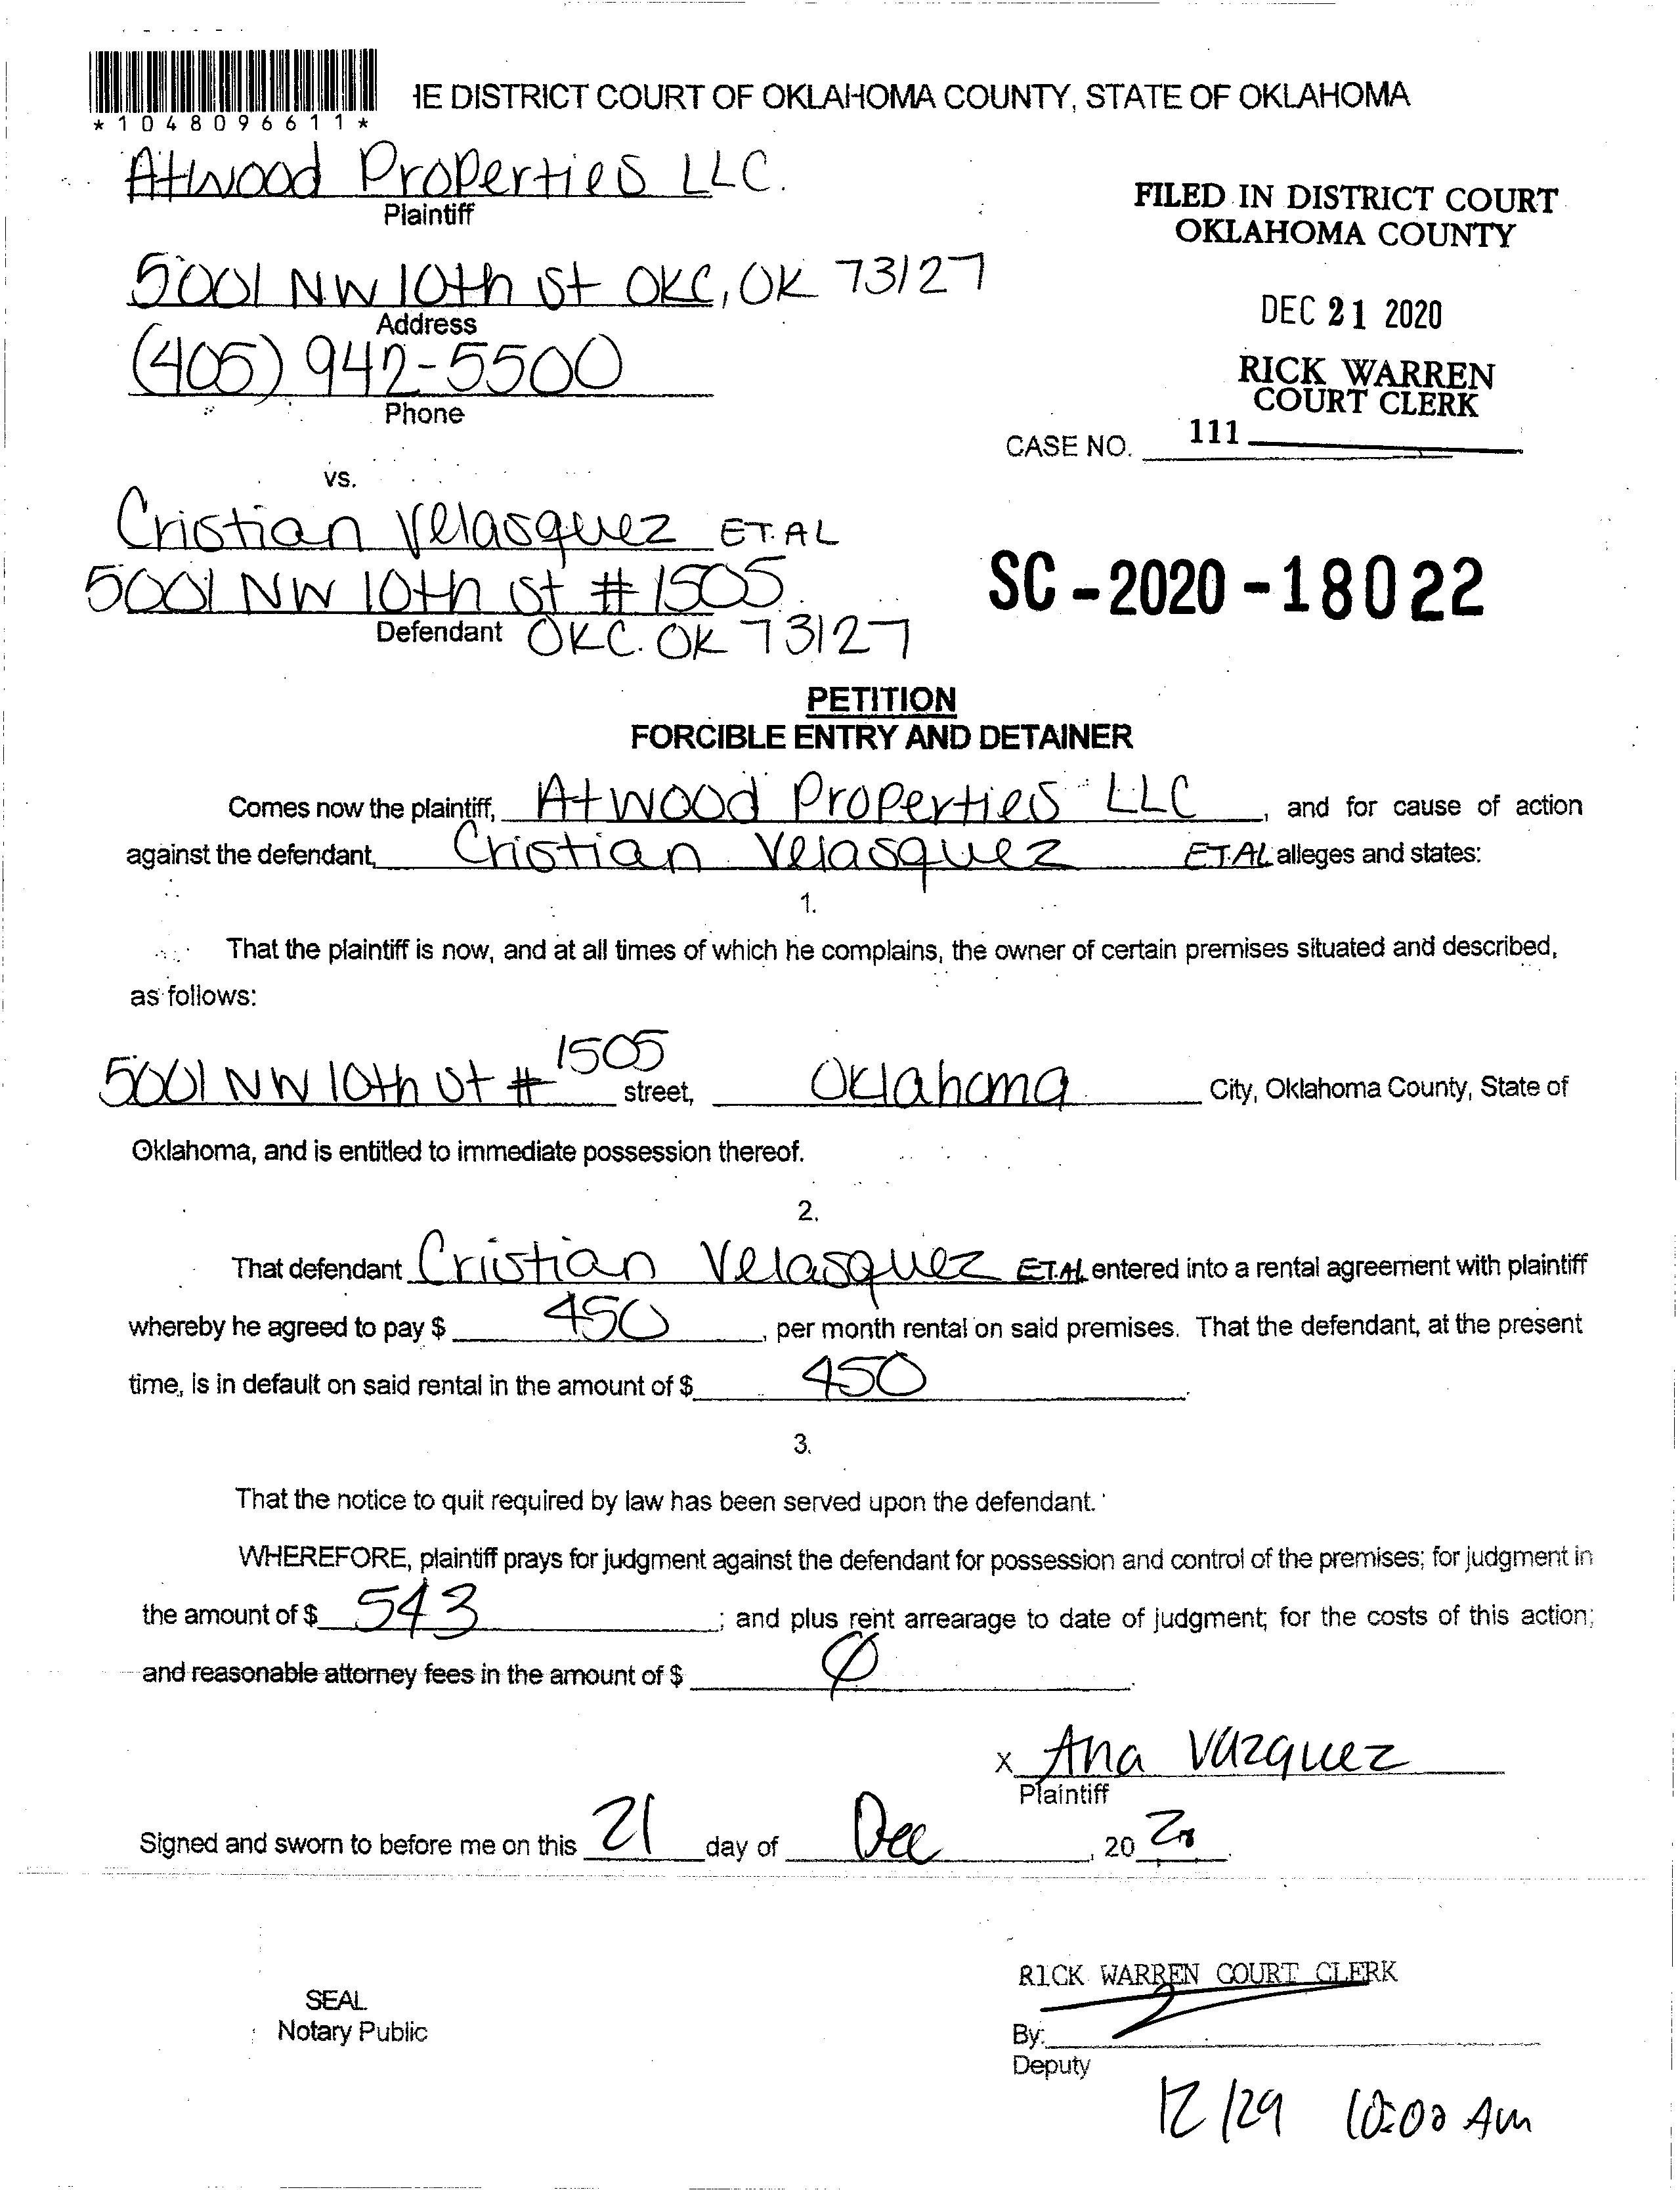 *1048096611*
IE DISTRICT COURT OF OKLAHOMA COUNTY, STATE OF OKLAHOMA
Atwood Properties LLC.
Plaintiff
FILED IN DISTRICT COURT
OKLAHOMA COUNTY
5001 NW 10th St OKC, OK 73127
Address
DEC 21 2020
(405) 942-5500
Phone
RICK WARREN
COURT CLERK
CASE NO. 111
vs.
Cristian Velasquez ET.AL
5001 NW 10th St # 1505
Defendant OKC. OK 73127
SC-2020-18022
PETITION
FORCIBLE ENTRY AND DETAINER
Comes now the plaintiff, Atwood Properties LLC, and for cause of action
against the defendant, Cristian Velasquez ET.AL alleges and states:
1.
That the plaintiff is now, and at all times of which he complains, the owner of certain premises situated and described,
as follows:
5001 NW 10th St # 1505 street, Oklahoma City, Oklahoma County, State of
Oklahoma, and is entitled to immediate possession thereof.
2.
That defendant Cristian Velasquez ET.AL entered into a rental agreement with plaintiff
whereby he agreed to pay $ 450, per month rental on said premises. That the defendant, at the present
time, is in default on said rental in the amount of $ 450.
3.
That the notice to quit required by law has been served upon the defendant.
WHEREFORE, plaintiff prays for judgment against the defendant for possession and control of the premises; for judgment in
the amount of $ 543; and plus rent arrearage to date of judgment; for the costs of this action;
and reasonable attorney fees in the amount of $ Ø.
x Ana Vazquez
Plaintiff
Signed and sworn to before me on this 21 day of Dec, 20 20.
RICK WARREN COURT CLERK
SEAL
Notary Public
By:
Deputy
12/29 10:00 AM